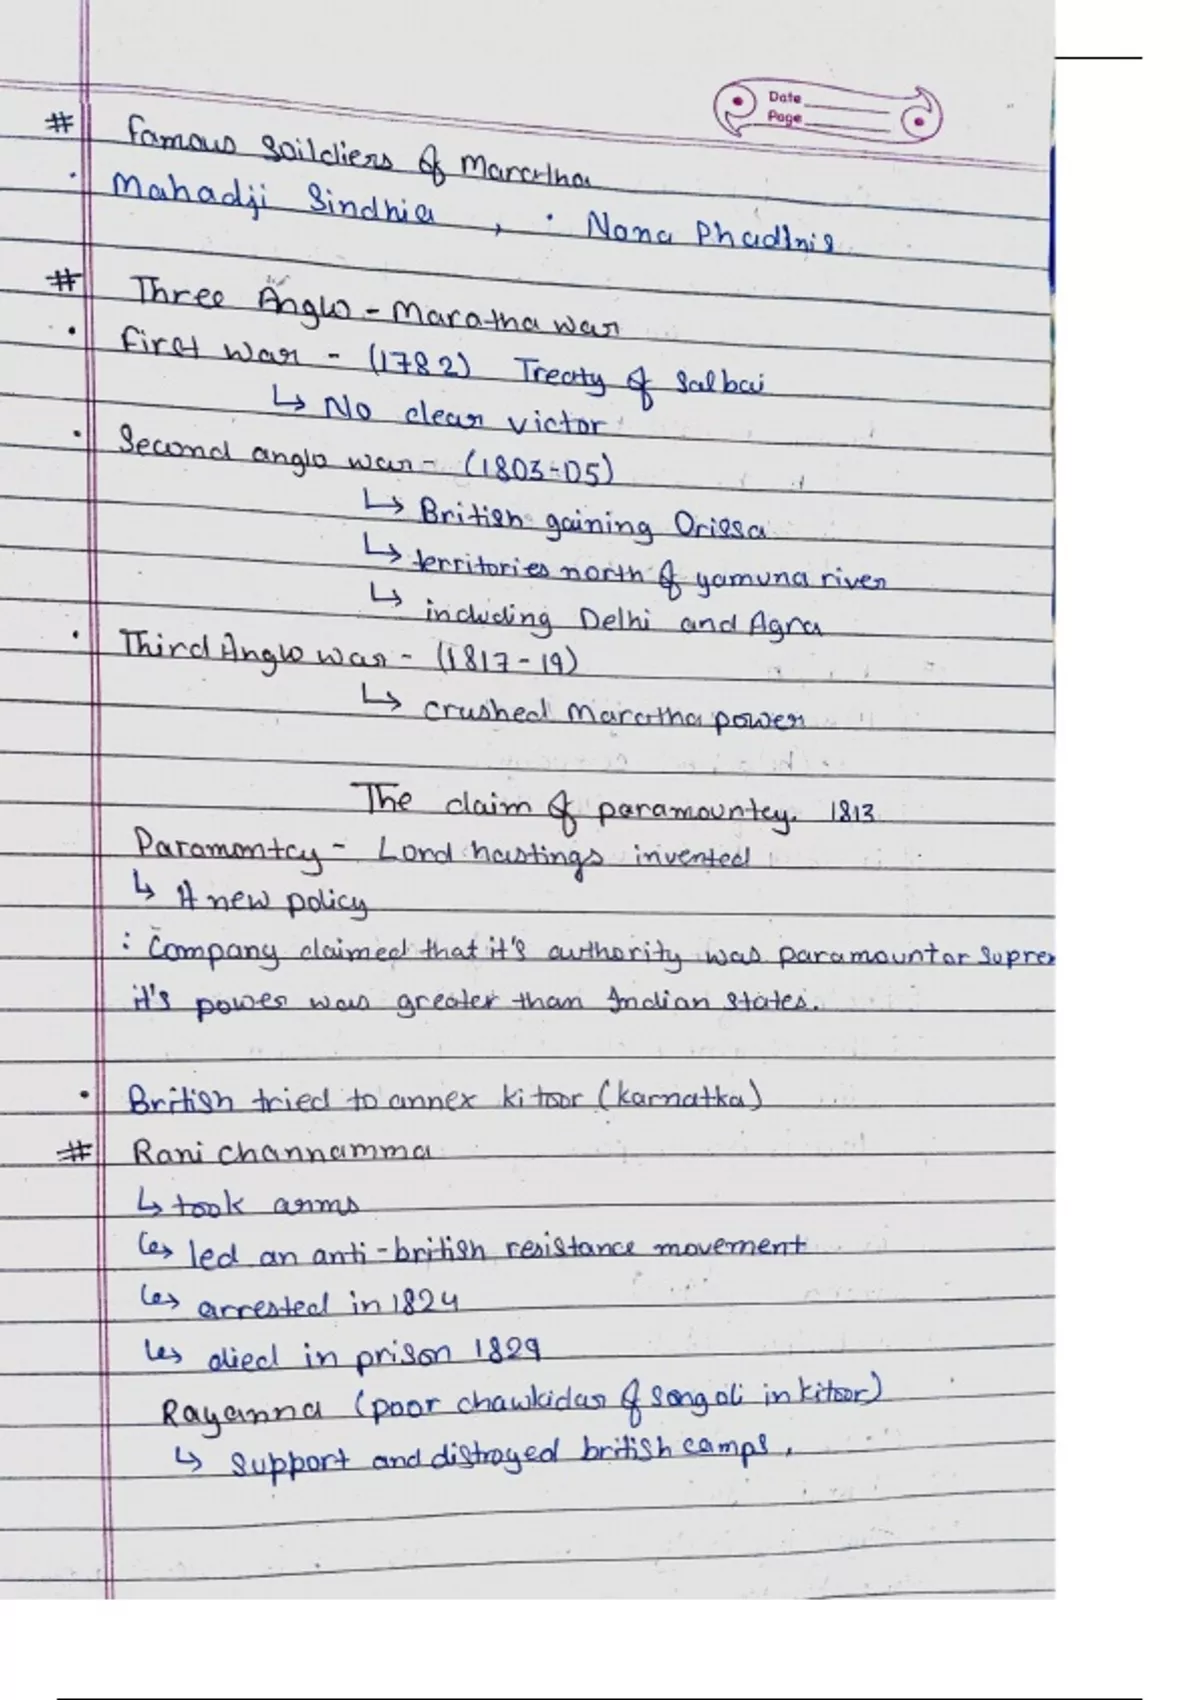 Date
Page
# Famous Soildiers of Maratha
· Mahadji Sindhia , · Nana Phadlnis
# Three Anglo - Maratha war
· First war - (1782) Treaty of Salbai
↳ No clear victor
· Second anglo war - (1803-05)
↳ British gaining Orissa
↳ territories north of yamuna river
↳ including Delhi and Agra
· Third Anglo war - (1817-19)
↳ crushed Maratha power
The claim of paramountcy. 1813
Paramontcy - Lord hastings invented
↳ A new policy
: Company claimed that it's authority was paramount or supre
it's power was greater than Indian states.
· British tried to annex kitoor (karnatka)
# Rani channamma
↳ took arms
↳ led an anti-british resistance movement
↳ arrested in 1824
↳ died in prison 1829
Rayanna (poor chawkidar of Sangoli in kitoor)
↳ support and distroyed british camps.